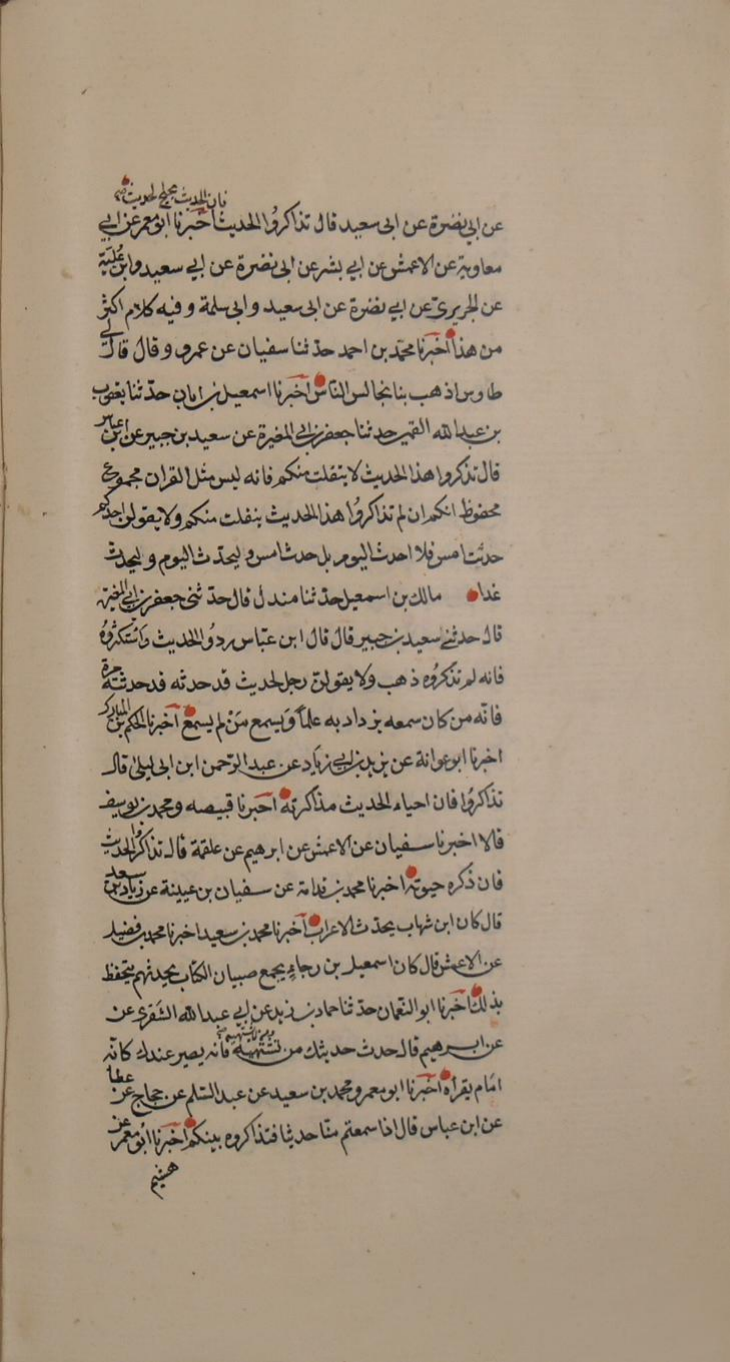 فان الحديث يهيج الحديث صح
عن ابي نضرة عن ابى سعيد قال تذاكروا الحديث اخبرنا ابو معمر عن ابي
معاوية عن الاعمش عن ابي بشر عن ابى نضرة عن ابي سعيد وابن علية
عن الجريرى عن ابي نضرة عن ابى سعيد وابى سلمة وفيه كلام اكثر
من هذا اخبرنا محمد بن احمد حدثنا سفيان عن عمرو قال قال لى
طاوس اذهب بنا نجالس الناس اخبرنا اسمعيل بن ابان حدثنا يعقوب
بن عبد الله القمي حدثنا جعفر بن ابي المغيرة عن سعيد بن جبير عن ابن عباس
قال تذكروا هذا الحديث لا يتفلت منكم فانه ليس مثل القران مجموع
محفوظ انكم ان لم تذاكروا هذا الحديث ينفلت منكم ولا يقولن احدكم
حدثت امس فلا احدث اليوم بل حدث امس وليحدث اليوم وليحدث
غدا مالك بن اسمعيل حدثنا مندل قال حدثنى جعفر بن ابي المغيرة
قال حدثني سعيد بن جبير قال قال ابن عباس ردوا الحديث واستذكروه
فانه لم تذكروه ذهب ولا يقولن رجل لحديث قد حدثه قد حدثته مرة
فانه من كان سمعه يزداد به علما ويسمع من لم يسمع اخبرنا الحكم بن المبارك
اخبرنا ابو عوانة عن يزيد بن ابي زياد عن عبد الرحمن ابن ابى ليلى قال
تذاكروا فان احياء الحديث مذاكرته اخبرنا قبيصه ومحمد بن يوسف
قالا اخبرنا سفيان عن الاعمش عن ابرهيم عن علقمة قال تذاكروا الحديث
فان ذكره حيوته اخبرنا محمد بن قدامة عن سفيان بن عيينة عن زياد بن سعد
قال كان ابن شهاب يحدث الاعراب اخبرنا محمد بن سعيد اخبرنا محمد بن فضيل
عن الاعمش قال كان اسمعيل بن رجاء يجمع صبيان الكتاب يحدثهم يتحفظ
بذلك اخبرنا ابو النعمان حدثنا حماد بن زيد عن ابي عبد الله الشقرى عن
عن ابرهيم قال حدث حديثك من تشتهيه فانه يصير عندك كانه
امام يقرأه اخبرنا ابو معمر ومحمد بن سعيد عن عبد السلم عن حجاج عن عطا
عن ابن عباس قال اذا سمعتم منا حديثا فتذاكروه بينكم اخبرنا ابو معمر عن
هشيم